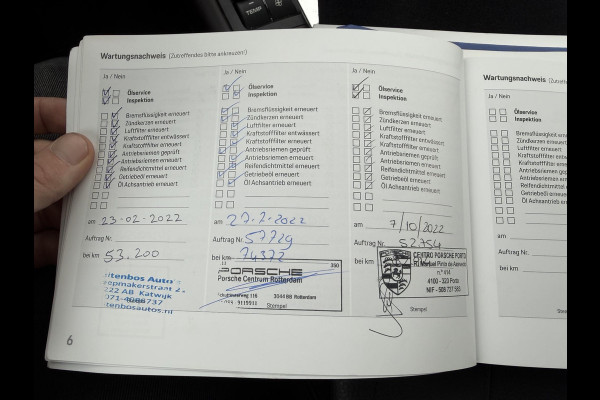 TEMP
Wartungsnachweis (Zutreffendes bitte ankreuzen!)
Ja / Nein
Ölservice
Inspektion
Bremsflüssigkeit erneuert
Zündkerzen erneuert
Luftfilter erneuert
Kraftstofffilter entwässert
Kraftstofffilter erneuert
Antriebsriemen geprüft
Antriebsriemen erneuert
Reifendichtmittel erneuert
Getriebeöl erneuert
Öl Achsantrieb erneuert
am 23-02-2022
Auftrag Nr.
bei km 53.200
tenbos Auto
222 AB Katwijk
071-4086737
tenbosautos.nl
6
Ja / Nein
Ölservice
Inspektion
Bremsflüssigkeit erneuert
Zündkerzen erneuert
Luftfilter erneuert
Kraftstofffilter entwässert
Kraftstofffilter erneuert
Antriebsriemen geprüft
Antriebsriemen erneuert
Reifendichtmittel erneuert
Getriebeöl erneuert
Öl Achsantrieb erneuert
am
2022
Auftrag Nr. 57729
bei km 74372
PORSCHE
Porsche Centrum Rotterdam
3044 BB Rotterdam
Stempel
Ja / Nein
Ölservice
Inspektion
Bremsflüssigkeit erneuert
Zündkerzen erneuert
Luftfilter erneuert
Kraftstofffilter entwässert
Kraftstofffilter erneuert
Antriebsriemen geprüft
Antriebsriemen erneuert
Reifendichtmittel erneuert
Getriebeöl erneuert
Öl Achsantrieb erneuert
am 7/10/2022
Auftrag Nr. 52754
bei km
CENTRO PORSCHE PORTO
R. Manuel Pinto de Azevedo
n.º 414
4100 - 320 Porto
Stempel
Wartungsnachweis (Zutreffe
Ja / Nein
Ölservice
Inspektion
Bremsflüssigkeit
Zündkerzen erneuert
Luftfilter erneuert
Kraftstofffilter
Kraftstofffilter
Antriebsriemen
Antriebsriemen
Reifendichtmittel
Getriebeöl erneuert
Öl Achsantrieb
am
Auftrag Nr.
bei km